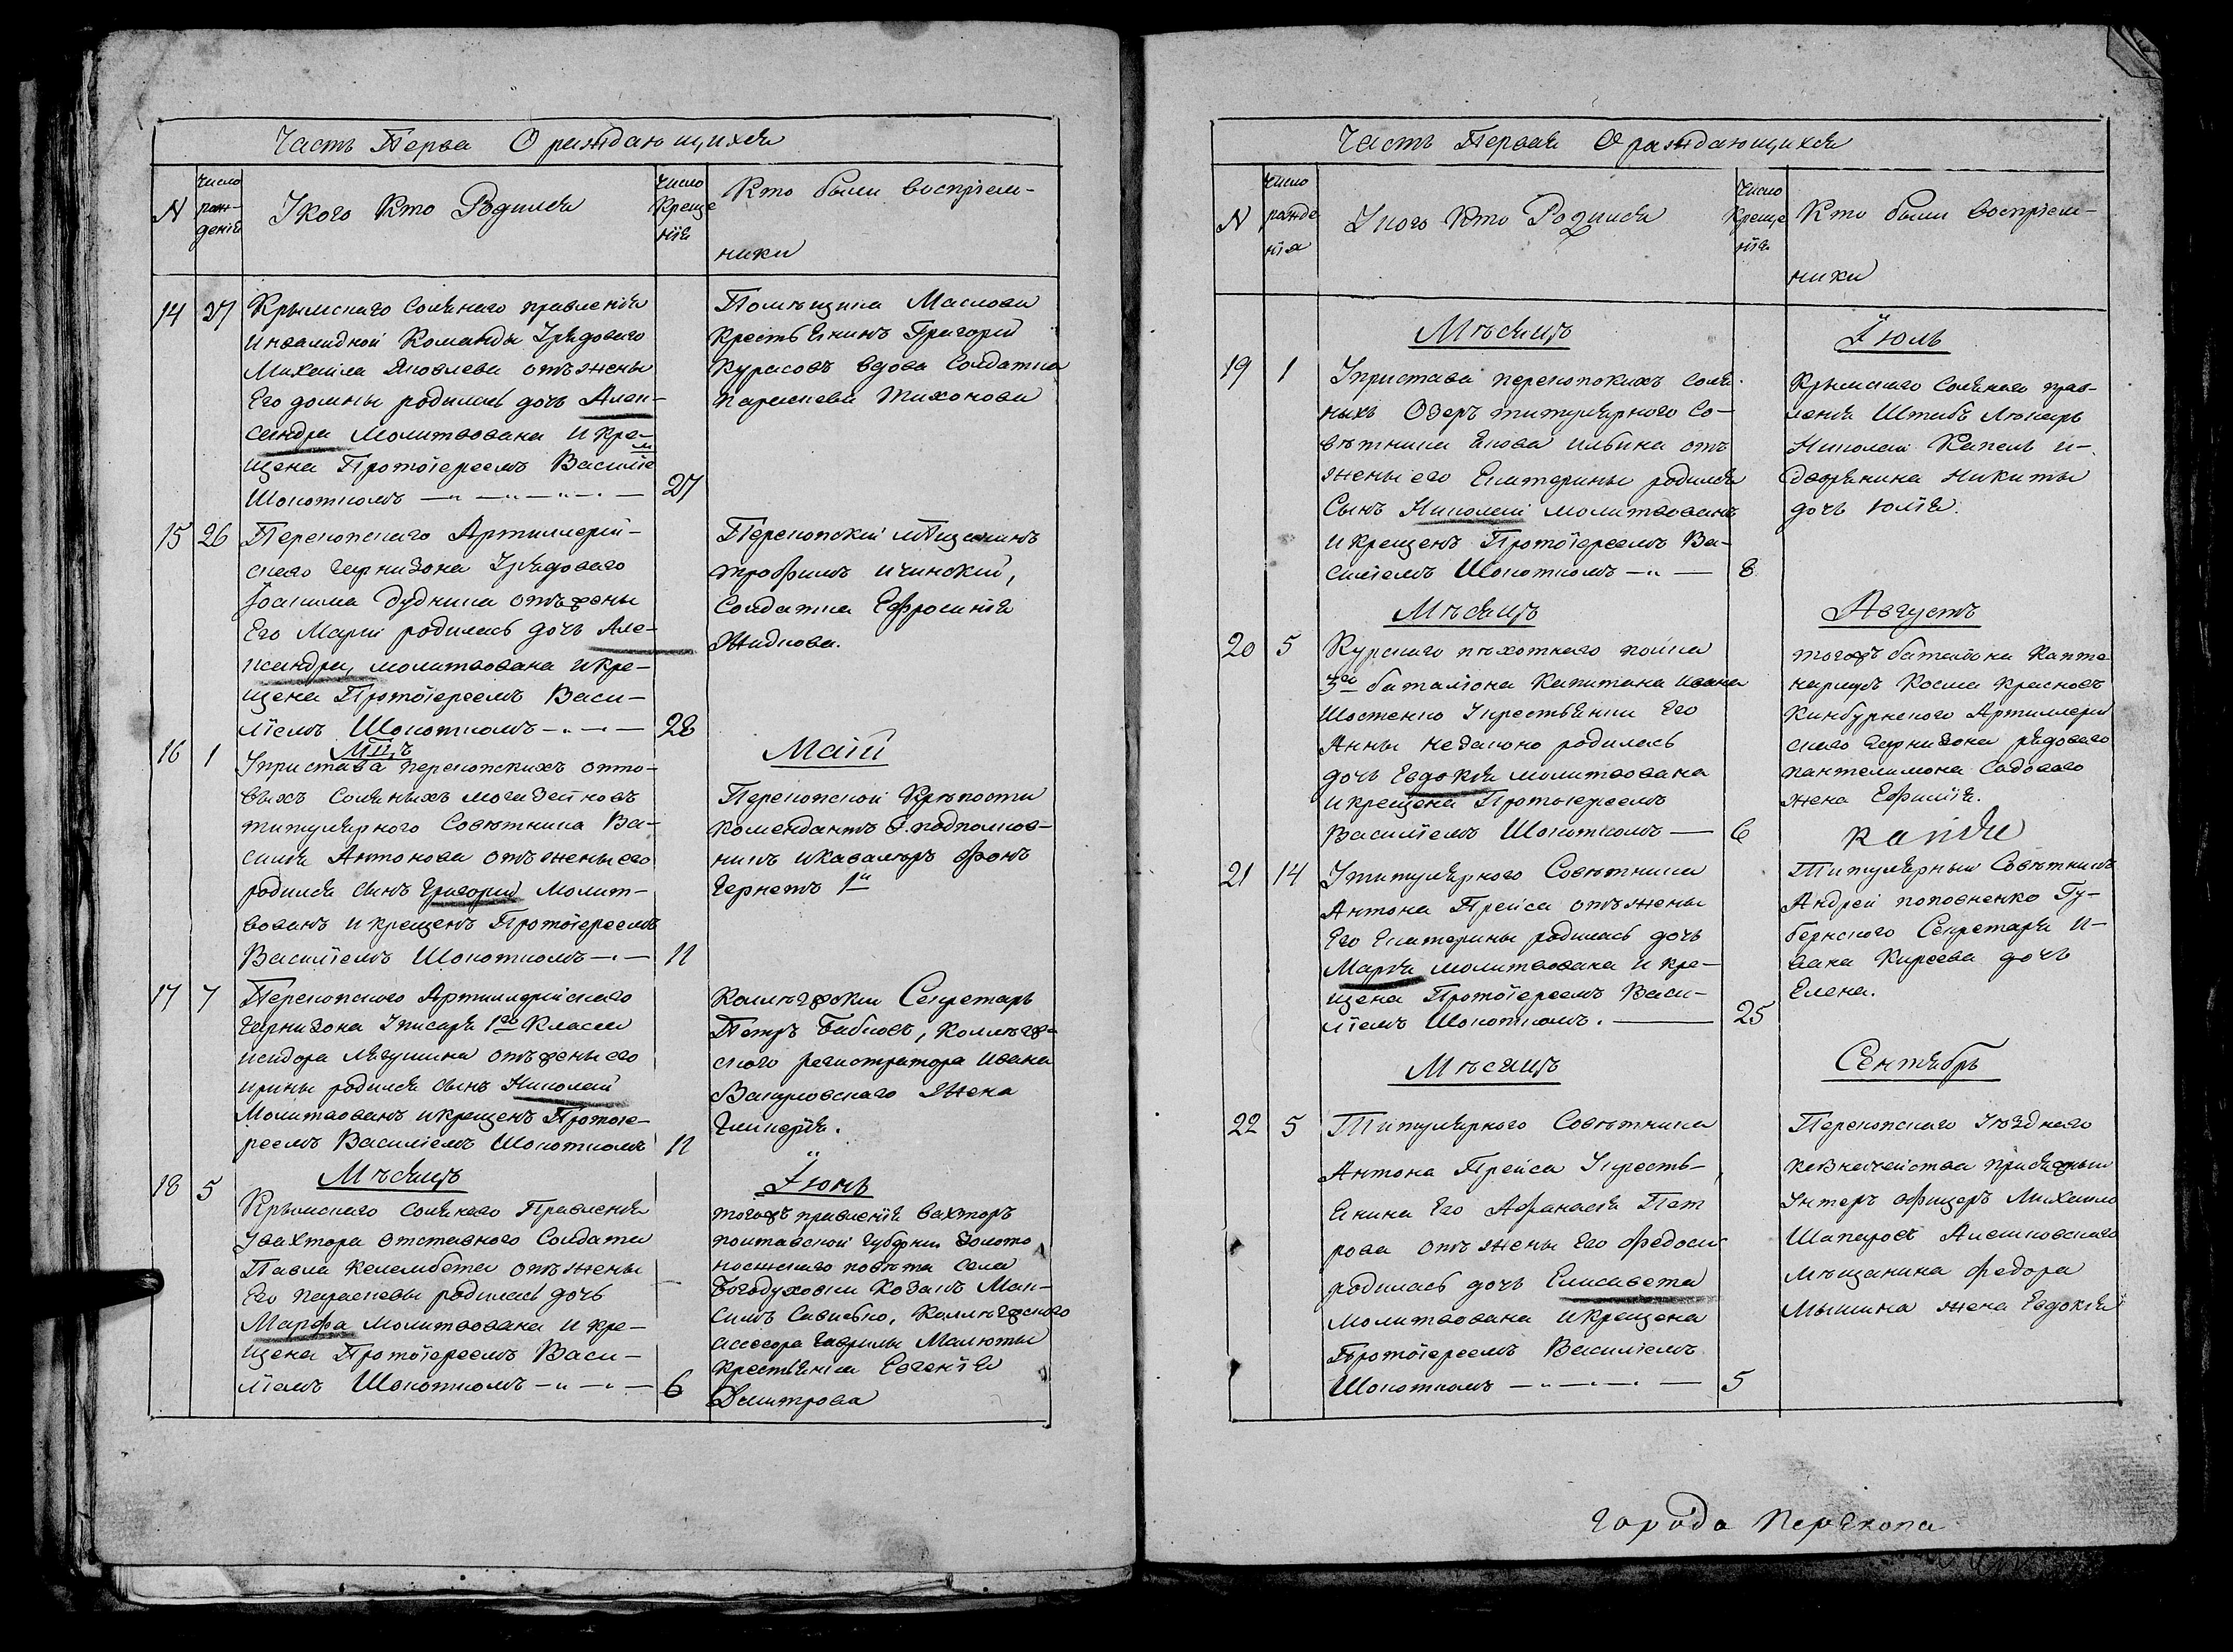 Часть Перва О раждающихся
N
число
раж-
денія
У кого Кто Родился
число
Креще
нія
Кто были воспріем-
ники
14 27 Крымскаго Соленаго правленія
инвалидной Команды У рядоваго
Михайла Яковлева отъ жены
Его домны родилась дочь Алек-
сандра молитвована и кре-
щена Протоіереемъ Василіе
м
Шокоткомъ 27
Помѣщика Маслова
Крестьянинъ Григорій
Курасовъ вдова Солдатка
парасковія Тихонова
15 26 Перекопскаго Артиллерій-
скаго гарнизона У рядоваго
Іоакима Дудкина отъ жены
Его Маріи родилась дочь Але-
ксандра, молитвована и кре-
щена Протоіереемъ Васи-
ліемъ Шокоткомъ 28
Перекопскій мѣщанинъ
трофимъ ичинскій,
Солдатка Ефросинія
Жидкова.
Мцъ
Маій
16 1 У пристава перекопскихъ опто-
выхъ Соляныхъ магазейновъ
титулярного Совѣтника Ва-
силія Антонова отъ жены его
родился сынъ Григорій Молит-
вованъ и крещенъ Протоіереемъ
Василіемъ Шокоткомъ 11
Перекопской Крѣпости
комендантъ Г. подполков-
никъ и кавалѣръ фонъ
Гернетъ 1й
17 7 Перекопского Артиллерійскаго
гарнизона У писаря 1го Класса
исидора лягушина отъ жены его
ирины родился сынъ Николай
Молитвованъ и крещенъ Протоіе-
реемъ Василіемъ Шокоткомъ 11
Коллѣжскій Секретарь
Петръ Бабковъ, Коллѣж-
ского регистратора Ивана
Вакуловскаго Жена
Гликерія.
Мѣсяцъ
Іюнь
18 5 Крымскаго соленаго Правленія
У вахтора отставного Солдата
Павла Келембета отъ жены
Его парасковы родилась дочь
Марфа молитвована и кре-
щена Протоіереемъ Васи-
ліемъ Шокоткомъ 6
тогожъ правленія вахторъ
полтавской губерніи Золото
ношскаго повѣта села
Богодуховки Козакъ Мак-
симъ Савиенко, Коллѣжского
ассесора Гаврилы Малюты
крестьянка Евгенія
Дмитрова
Часть Первая О раждающихся
N
число
ражде
нія
У кого Кто Родился
Число
Креще
нія
Кто были воспріем-
ники
Мѣсяцъ
Іюль
19 1 У пристава перекопскихъ соля-
ныхъ Озеръ титулярного Со-
вѣтника Якова ильина отъ
жены его Екатерины родился
Сынъ Николай молитвованъ
и крещенъ Протоіереемъ Ва-
силіемъ Шокоткомъ 8
Крымскаго соленаго прав-
ленія Штабъ Лѣкарь
Николай Капель и
дворянина никиты
дочь юлія.
Мѣсяцъ
Августъ
20 5 Курскаго пѣхотнаго полка
3го баталіона Капитана ивана
Шостенко У крестьянки Его
Анны незаконо родилась
дочь Евдокія молитвована
и крещена Протоіереемъ
Василіемъ Шокоткомъ 6
тогожъ баталіона Капте
нармусъ Косма красновъ
Кинбурнского Артиллерій
скаго гарнизона рядоваго
пантелимона Садоваго
жена Ефимія.
21 14 У титулярного Совѣтника
Антона Прейса отъ жены
Его Екатерины родилась дочь
Марія молитвована и кре-
щена Протоіереемъ Васи-
ліемъ Шокоткомъ. 25
Титулярный Совѣтникъ
Андрей поповненко Гу-
бернского Секретаря И-
вана Киреева дочь
Елена.
Мѣсяцъ
Сентябрь
22 5 Титулярного Совѣтника
Антона Прейса У кресть-
янина Его Афанасія Пет
рова отъ жены Его федосіи
родилась дочь Елисавета
молитвована и крещена
Протоіереемъ Василіемъ
Шокоткомъ 5
Перекопскаго Уѣзднаго
казначейства присяжный
Унтеръ офицеръ Михайло
Шапаровъ Алешковскаго
мѣщанина федора
Мышина жена Евдокія
города Перекопа